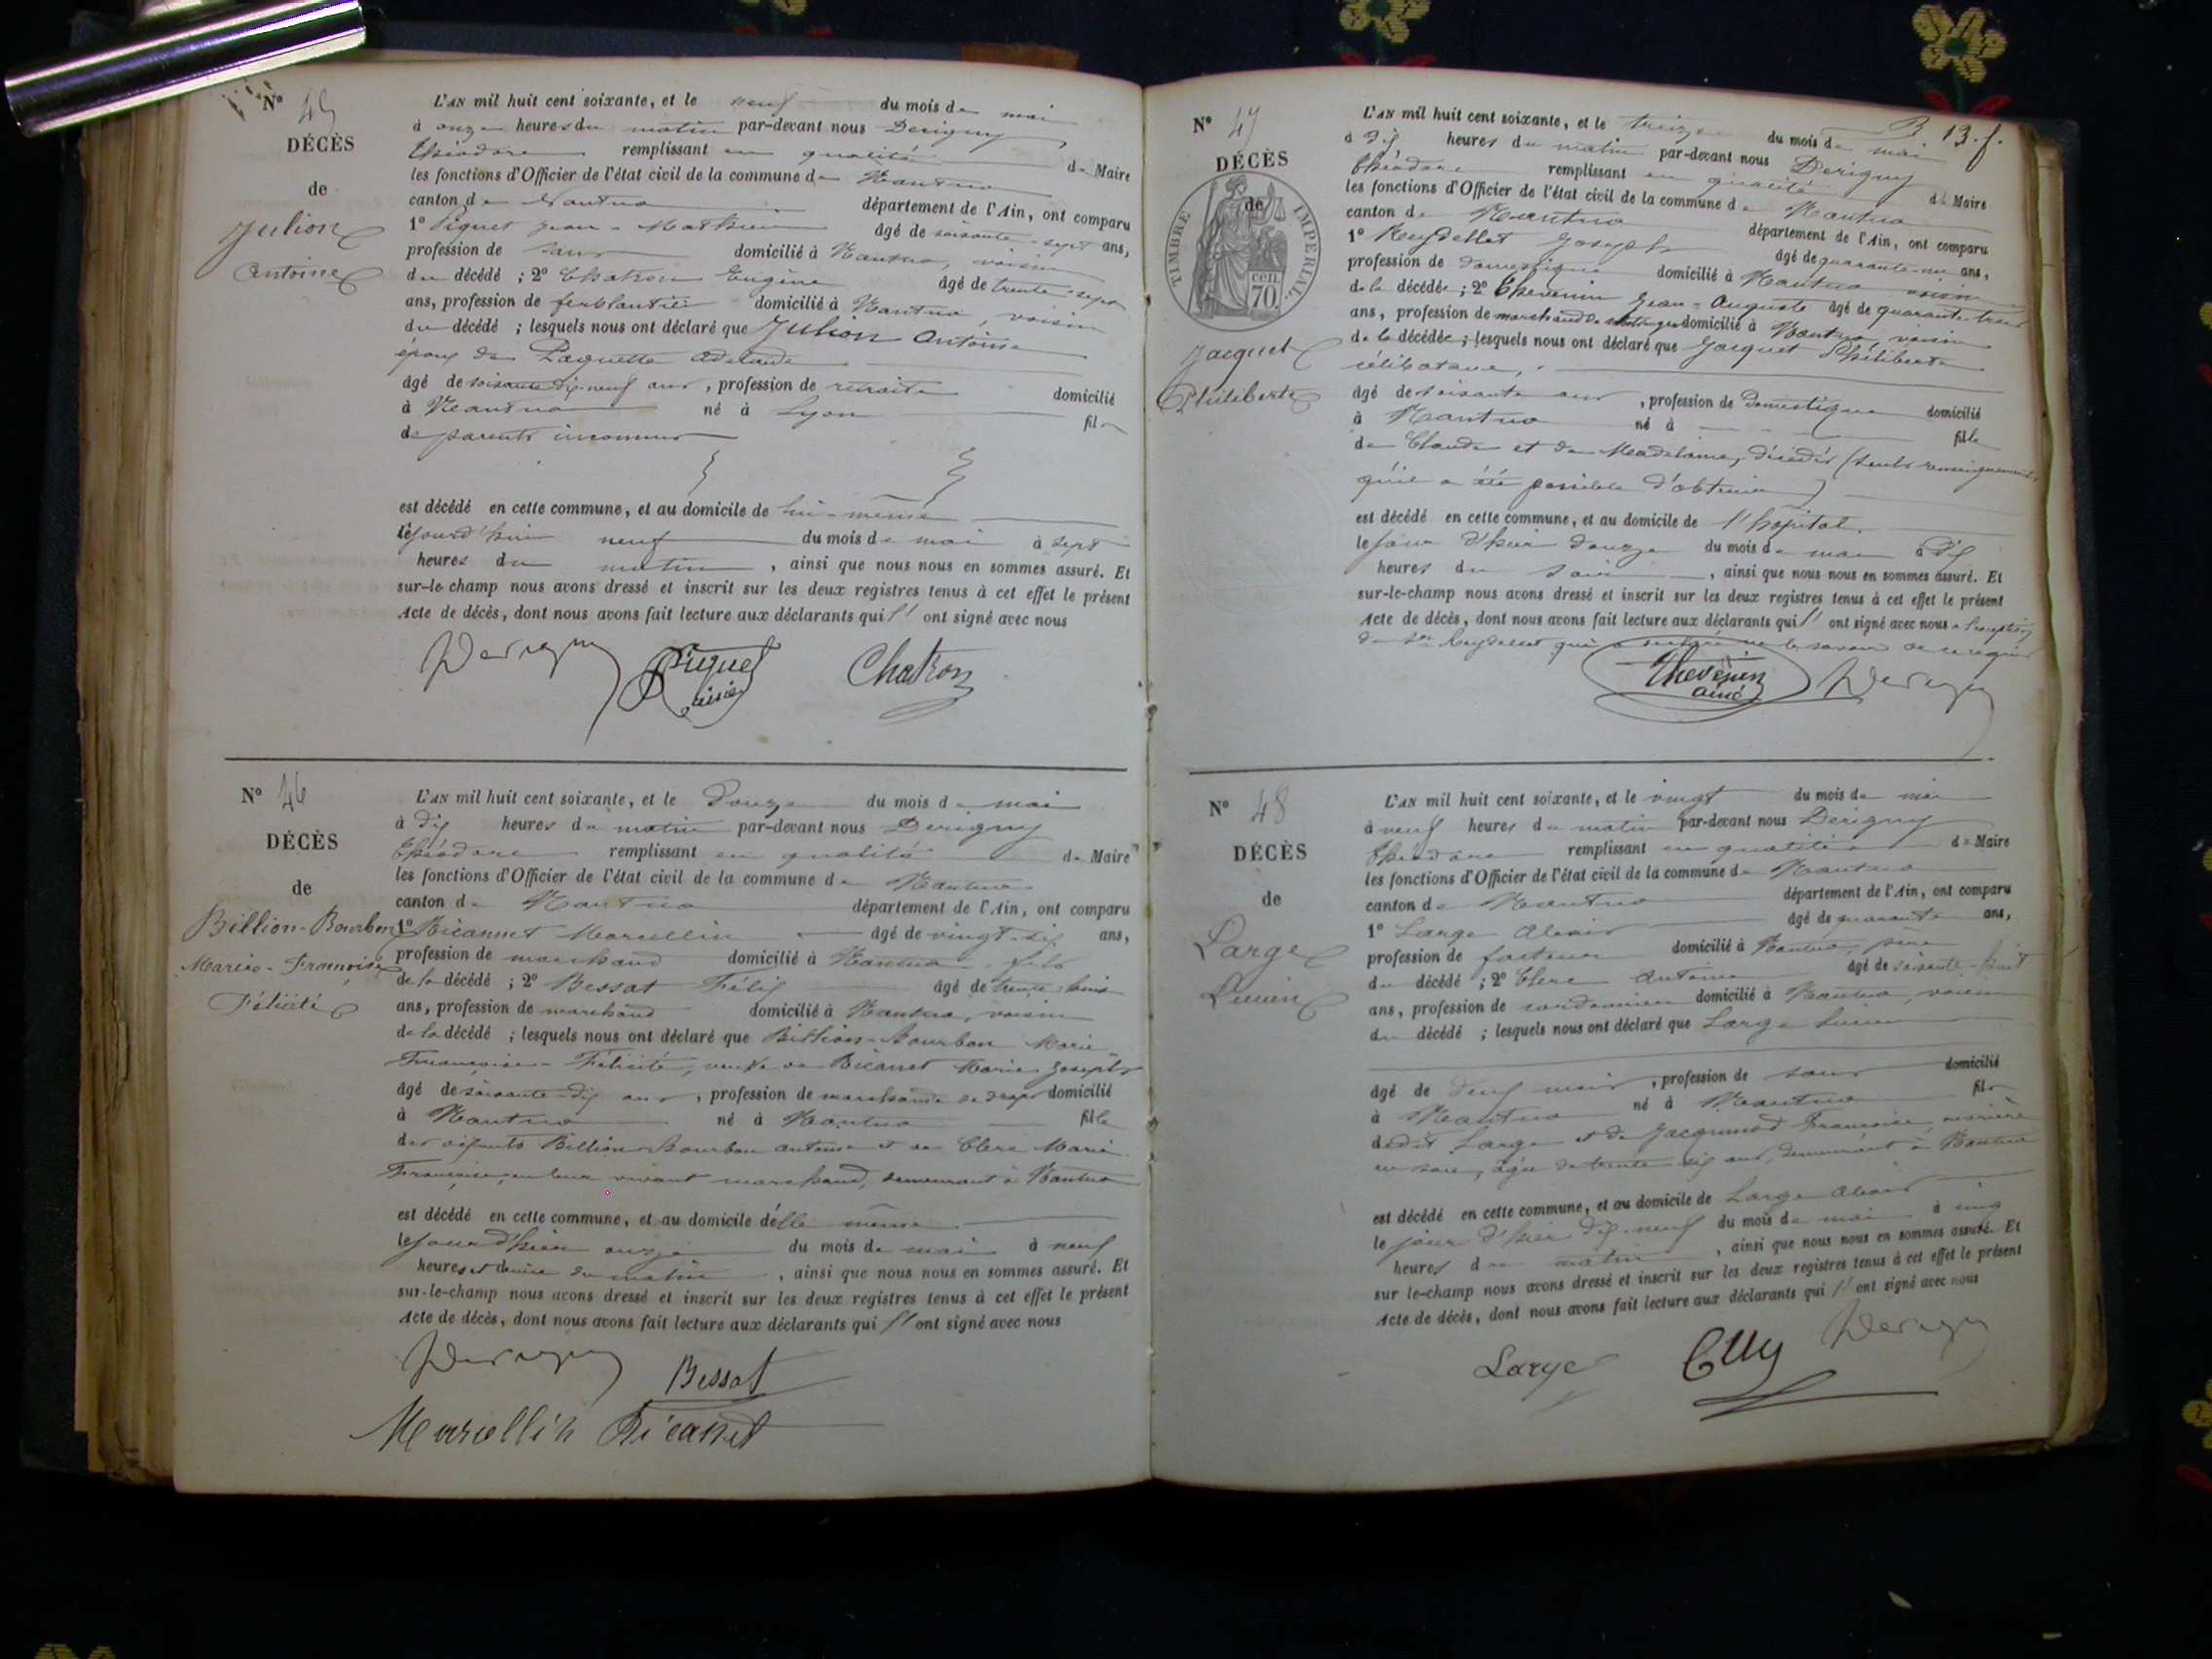 N° 45
DÉCÈS
de
Julion
Antoine
L'AN mil huit cent soixante, et le neuf du mois de mai
à onze heures du matin par-devant nous Derigny
Théodore remplissant en qualité de Maire
les fonctions d'Officier de l'état civil de la commune de Nantua
canton de Nantua département de l'Ain, ont comparu
1° Piquet Jean-Mathieu âgé de soixante-sept ans,
profession de sans domicilié à Nantua, voisin
du décédé ; 2° Chatron Eugène âgé de trente-sept
ans, profession de ferblantier domicilié à Nantua, voisin
du décédé ; lesquels nous ont déclaré que Julion Antoine
époux de Paquette Adelaide
âgé de soixante-dix-neuf ans, profession de retraité domicilié
à Nantua né à Lyon fils
de parents inconnus
est décédé en cette commune, et au domicile de lui-même
le jourd'hui neuf du mois de mai à sept
heures du matin, ainsi que nous nous en sommes assuré. Et
sur-le-champ nous avons dressé et inscrit sur les deux registres tenus à cet effet le présent
Acte de décès, dont nous avons fait lecture aux déclarants qui l' ont signé avec nous
Derigny Piquet Chatron
N° 46
DÉCÈS
de
Billion-Bourbon
Marie-Françoise
Félicité
L'AN mil huit cent soixante, et le douze du mois de mai
à dix heures du matin par-devant nous Derigny
Théodore remplissant en qualité de Maire
les fonctions d'Officier de l'état civil de la commune de Nantua
canton de Nantua département de l'Ain, ont comparu
1° Ricannet Marcellin âgé de vingt-six ans,
profession de marchand domicilié à Nantua, fils
de la décédé ; 2° Bessat Félix âgé de trente-huit
ans, profession de marchand domicilié à Nantua, voisin
de la décédé ; lesquels nous ont déclaré que Billion-Bourbon Marie-
Françoise-Félicité, veuve de Ricanet Marie Joseph
âgé de soixante-dix ans, profession de marchande de draps domicilié
à Nantua né à Nantua fille
des défunts Billion-Bourbon Antoine et de Clerc Marie
Françoise, en leur vivant marchand, demeurant à Nantua
est décédé en cette commune, et au domicile d'elle même
le jour d'hier onze du mois de mai à neuf
heures et demie du matin, ainsi que nous nous en sommes assuré. Et
sur-le-champ nous avons dressé et inscrit sur les deux registres tenus à cet effet le présent
Acte de décès, dont nous avons fait lecture aux déclarants qui l' ont signé avec nous
Derigny Bessat
Marcellin Ricanet
B 13. f.
N° 47
DÉCÈS
de
TIMBRE IMPERIAL
cen.
70
Jacquet
Philiberte
L'AN mil huit cent soixante, et le treize du mois de mai
à dix heures du matin par-devant nous Derigny
Théodore remplissant en qualité de Maire
les fonctions d'Officier de l'état civil de la commune de Nantua
canton de Nantua département de l'Ain, ont comparu
1° Reydellet Joseph âgé de quarante-un ans,
profession de domestique domicilié à Nantua voisin
de la décédée ; 2° Thevenin Jean-Auguste âgé de quarante-trois
ans, profession de marchand de domicilié à Nantua, voisin
de la décédée ; lesquels nous ont déclaré que Jacquet Philiberte
célibataire,
âgé de soixante ans, profession de domestique domicilié
à Nantua né à fille
de Claude et de Madelaine, décédés (seuls renseignements
qu'il a été possible d'obtenir)
est décédé en cette commune, et au domicile de l'hôpital
le jour d'hier douze du mois de mai à dix
heures du soir, ainsi que nous nous en sommes assuré. Et
sur-le-champ nous avons dressé et inscrit sur les deux registres tenus à cet effet le présent
Acte de décès, dont nous avons fait lecture aux déclarants qui l' ont signé avec nous à l'exception
de Sr Reydellet qui a déclaré ne le savoir de ce requis
Thevenin
ainé Derigny
N° 48
DÉCÈS
de
Large
Lucien
L'AN mil huit cent soixante, et le vingt du mois de mai
à neuf heures du matin par-devant nous Derigny
Théodore remplissant en qualité de Maire
les fonctions d'Officier de l'état civil de la commune de Nantua
canton de Nantua département de l'Ain, ont comparu
1° Large Alexis âgé de quarante ans,
profession de facteur domicilié à Nantua, père
du décédé ; 2° Clerc Antoine âgé de soixante-huit
ans, profession de cordonnier domicilié à Nantua, voisin
du décédé ; lesquels nous ont déclaré que Large Lucien
âgé de deux mois, profession de sans domicilié
à Nantua né à Nantua fils
dudit Large et de Jacquemod Françoise, ouvrière
en soie, âgée de trente-six ans, demeurant à Nantua
est décédé en cette commune, et au domicile de Large Alexis
le jour d'hier dix-neuf du mois de mai à cinq
heures du matin, ainsi que nous nous en sommes assuré. Et
sur le-champ nous avons dressé et inscrit sur les deux registres tenus à cet effet le présent
Acte de décès, dont nous avons fait lecture aux déclarants qui l' ont signé avec nous
Large Derigny